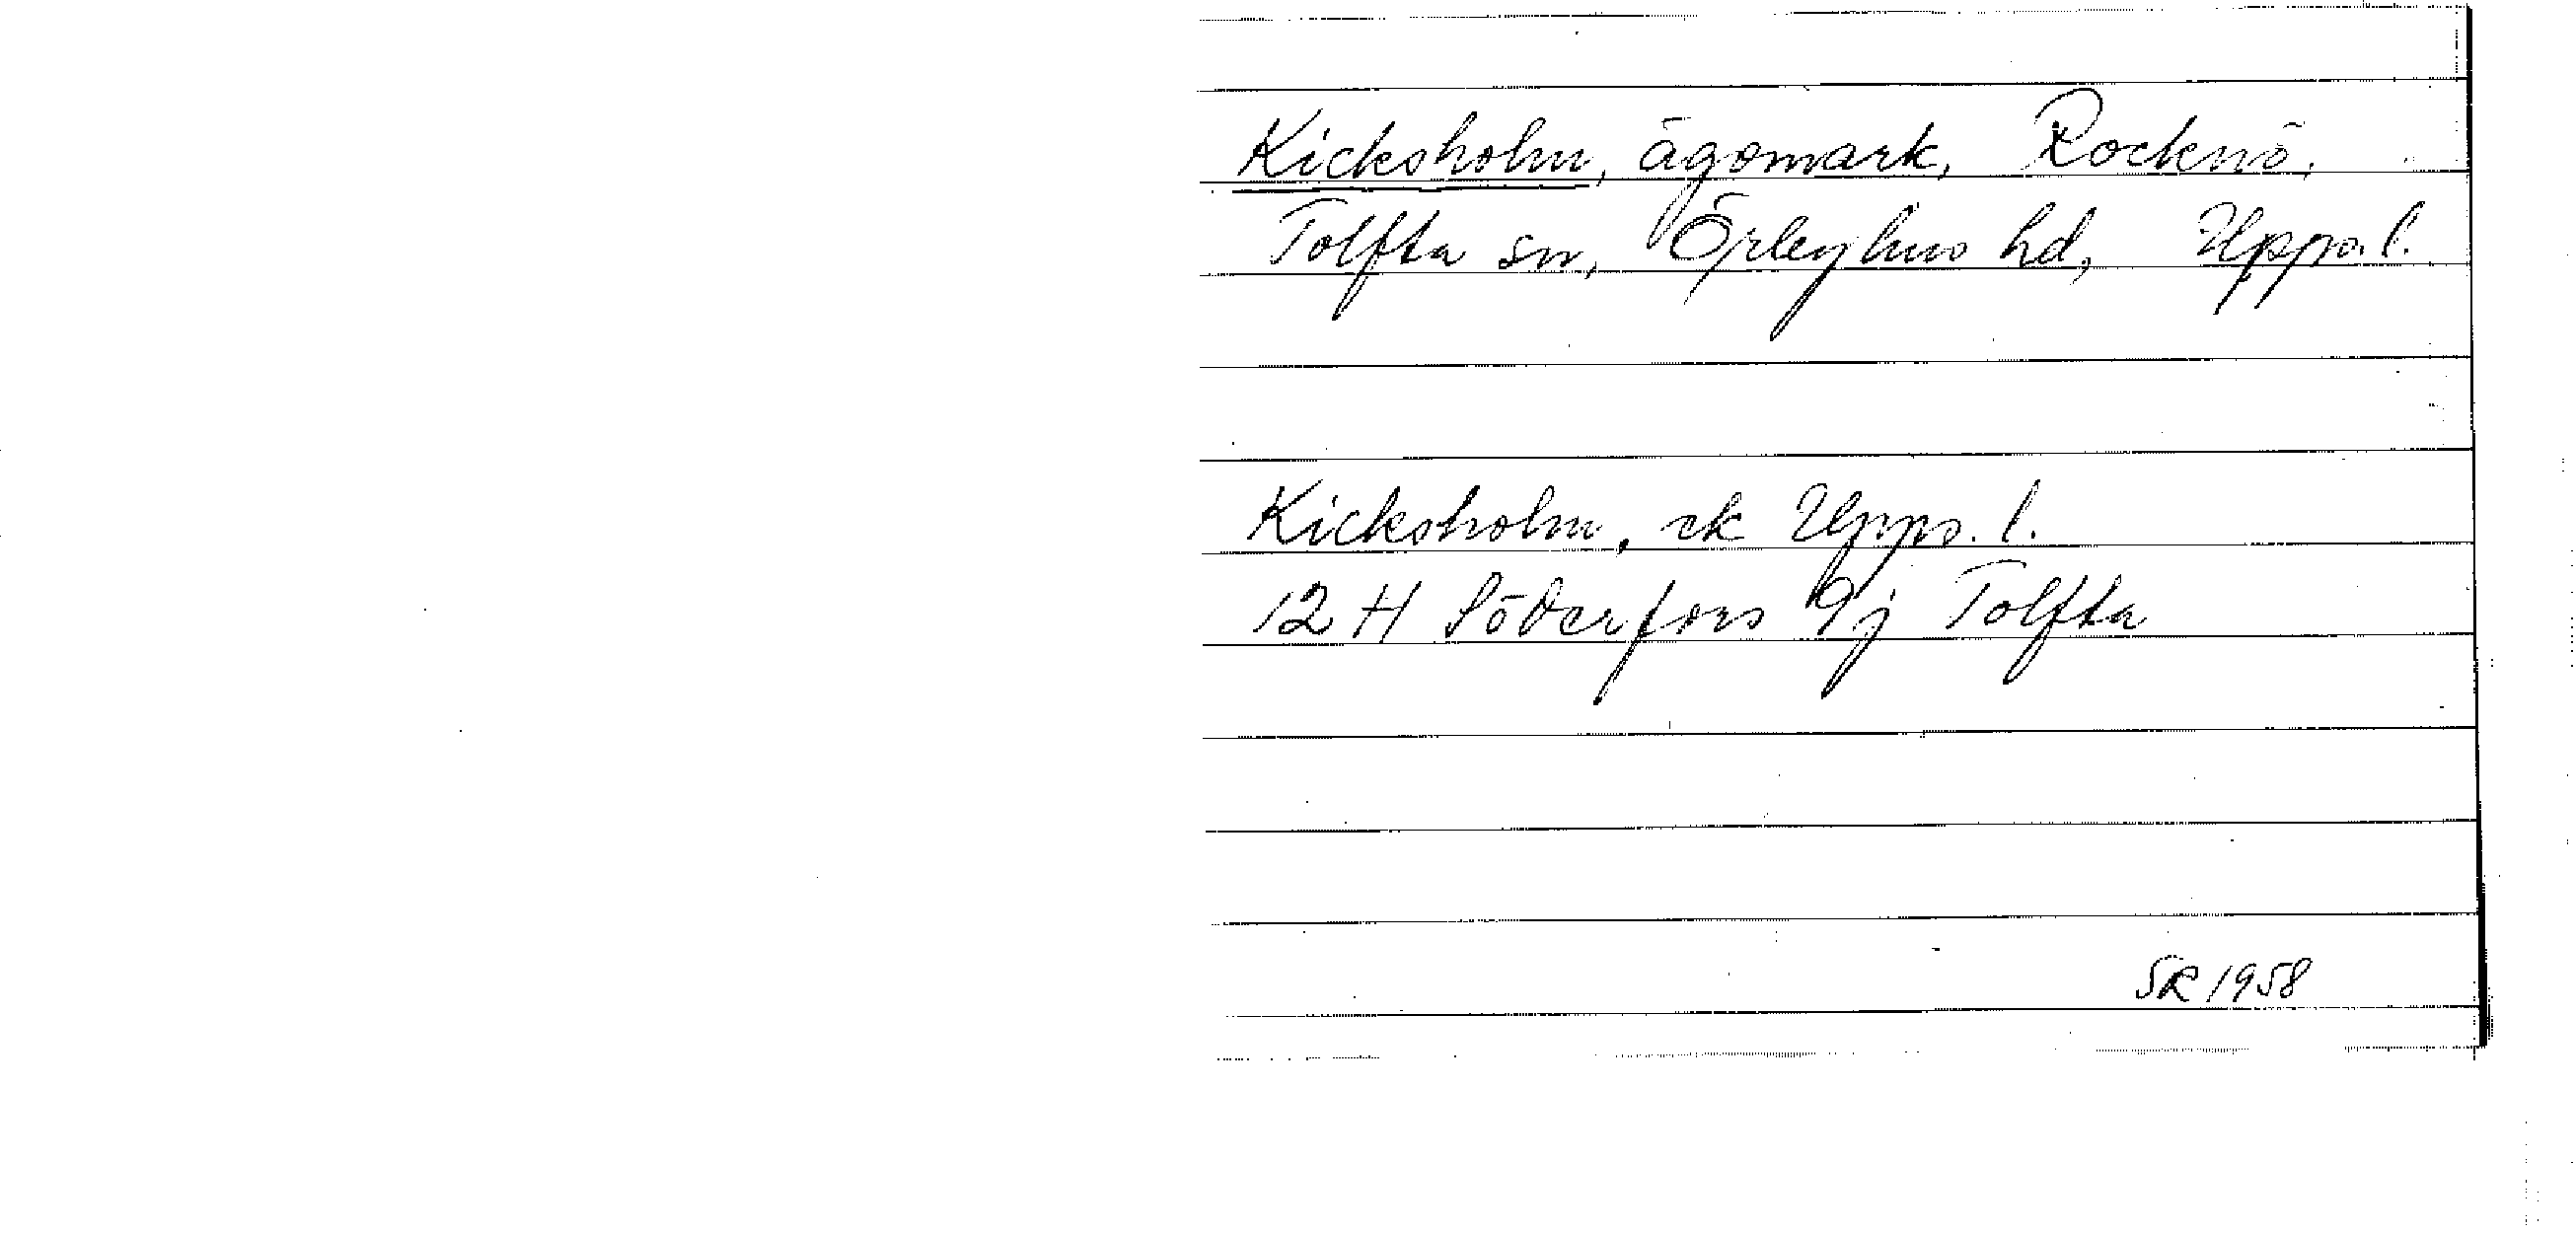 Kicksholm, ägomark, Rocknö,
Tolfta sn, Örbyhus hd, Upps. l.
Kicksholm, ek Upps. l.
12 H Söderfors 9j Tolfta
SR 1958